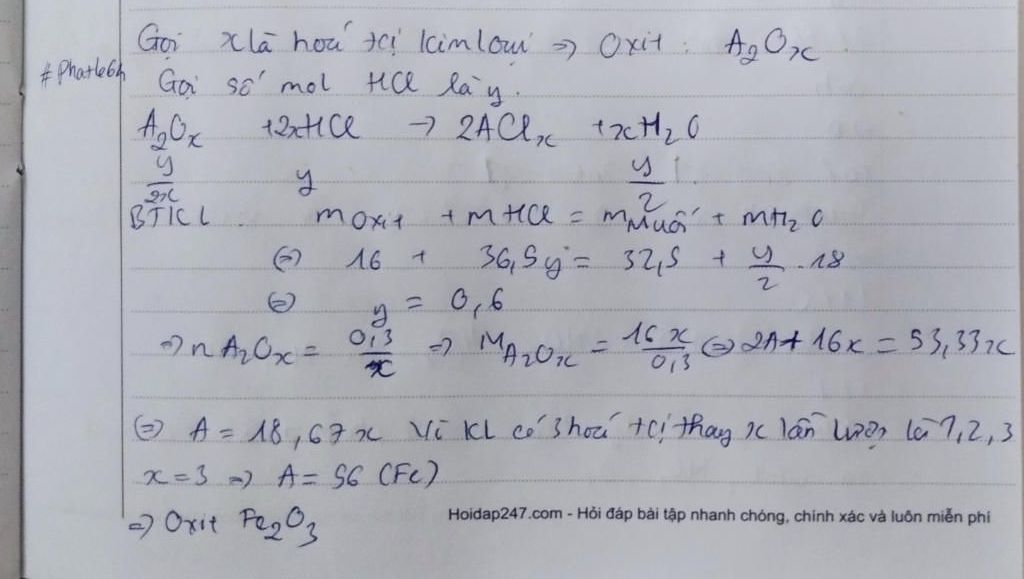 Gọi x là hoá trị kim loại => Oxit: A₂Oₓ
#Phatle6h
Gọi số mol HCl là y.
A₂Oₓ + 2xHCl → 2AClₓ + xH₂O
y/2x y y/2
BTKL: m oxit + m HCl = m Muối + m H₂O
⇔ 16 + 36,5y = 32,5 + y/2 . 18
⇔ y = 0,6
=> n A₂Oₓ = 0,3/x => M A₂Oₓ = 16x/0,3 ⇔ 2A + 16x = 53,33x
⇔ A = 18,67x Vì KL có 3 hoá trị thay x lần lượt là 1, 2, 3
x = 3 => A = 56 (Fe)
=> Oxit Fe₂O₃
Hoidap247.com - Hỏi đáp bài tập nhanh chóng, chính xác và luôn miễn phí